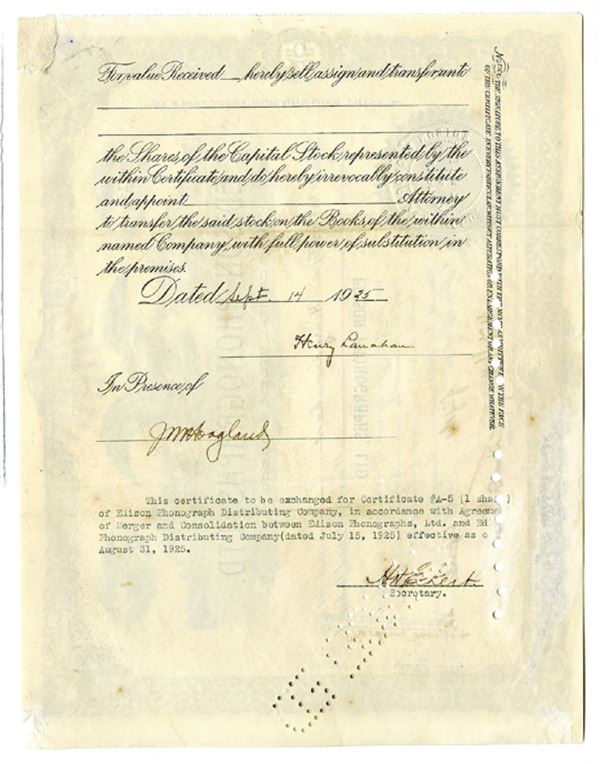 For value Received hereby sell, assign and transfer unto
the Shares of the Capital Stock represented by the
within Certificate, and do hereby irrevocably constitute
and appoint Attorney
to transfer the said stock on the Books of the within
named Company, with full power of substitution in
the premises.
Dated Sept. 14 1925
Henry Lanahan
In Presence of
This certificate to be exchanged for Certificate #A-5 (1 share)
of Edison Phonograph Distributing Company, in accordance with Agreeme
of Merger and Consolidation between Edison Phonographs, Ltd. and Ed
Phonograph Distributing Company(dated July 15, 1925) effective as o
August 31, 1925.
Secretary.
NOTICE: THE SIGNATURE TO THIS ASSIGNMENT MUST CORRESPOND WITH THE NAME AS WRITTEN UPON THE FACE
OF THE CERTIFICATE IN EVERY PARTICULAR WITHOUT ALTERATION OR ENLARGEMENT OR ANY CHANGE WHATEVER.